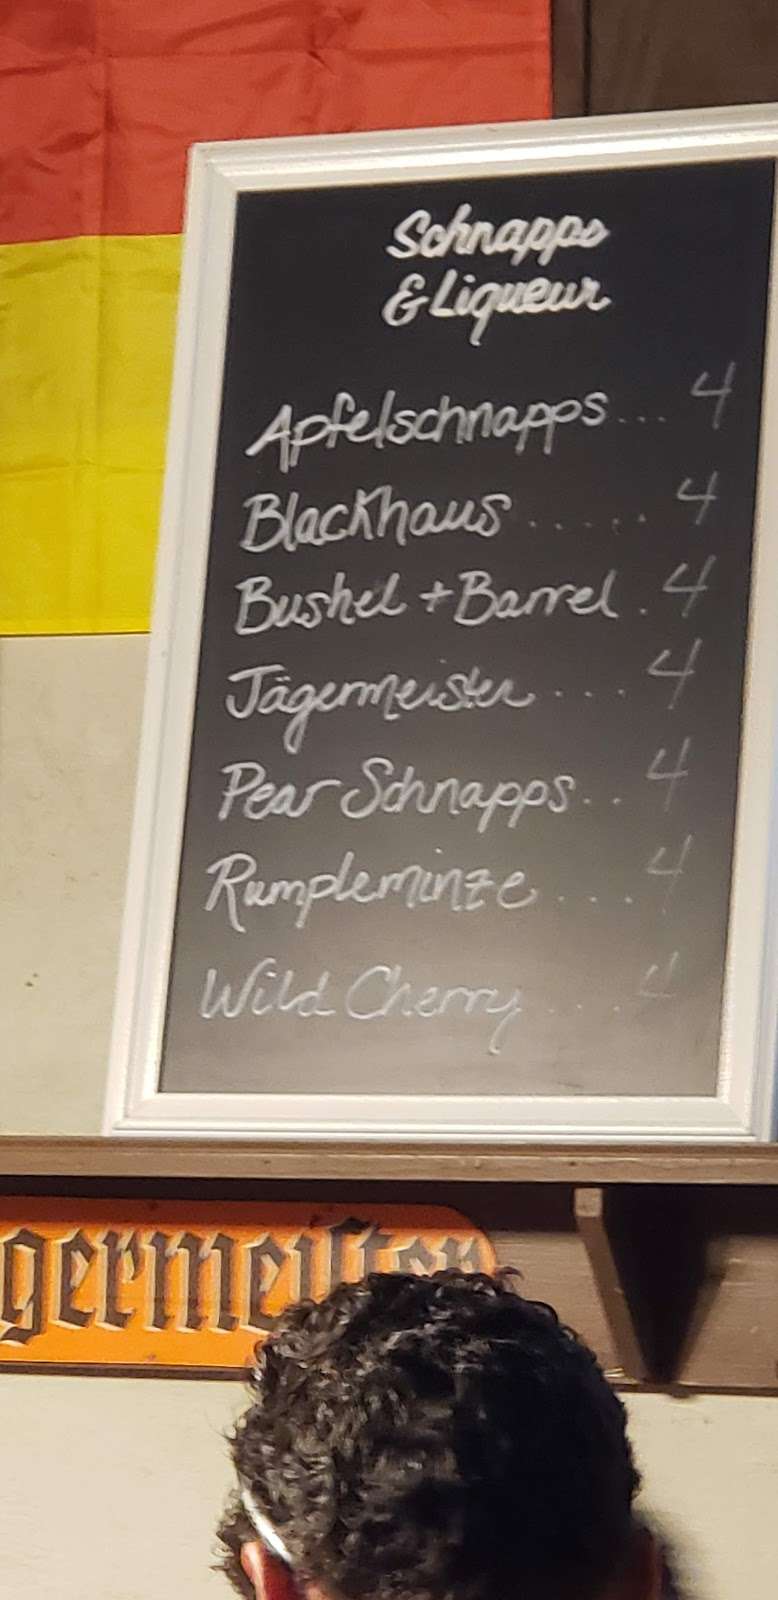 Schnapps
& Liqueur
Apfelschnapps... 4
Blackhaus ..... 4
Bushel + Barrel . 4
Jägermeister ... 4
Pear Schnapps .. 4
Rumpleminze ... 4
Wild Cherry .... 4
germeister